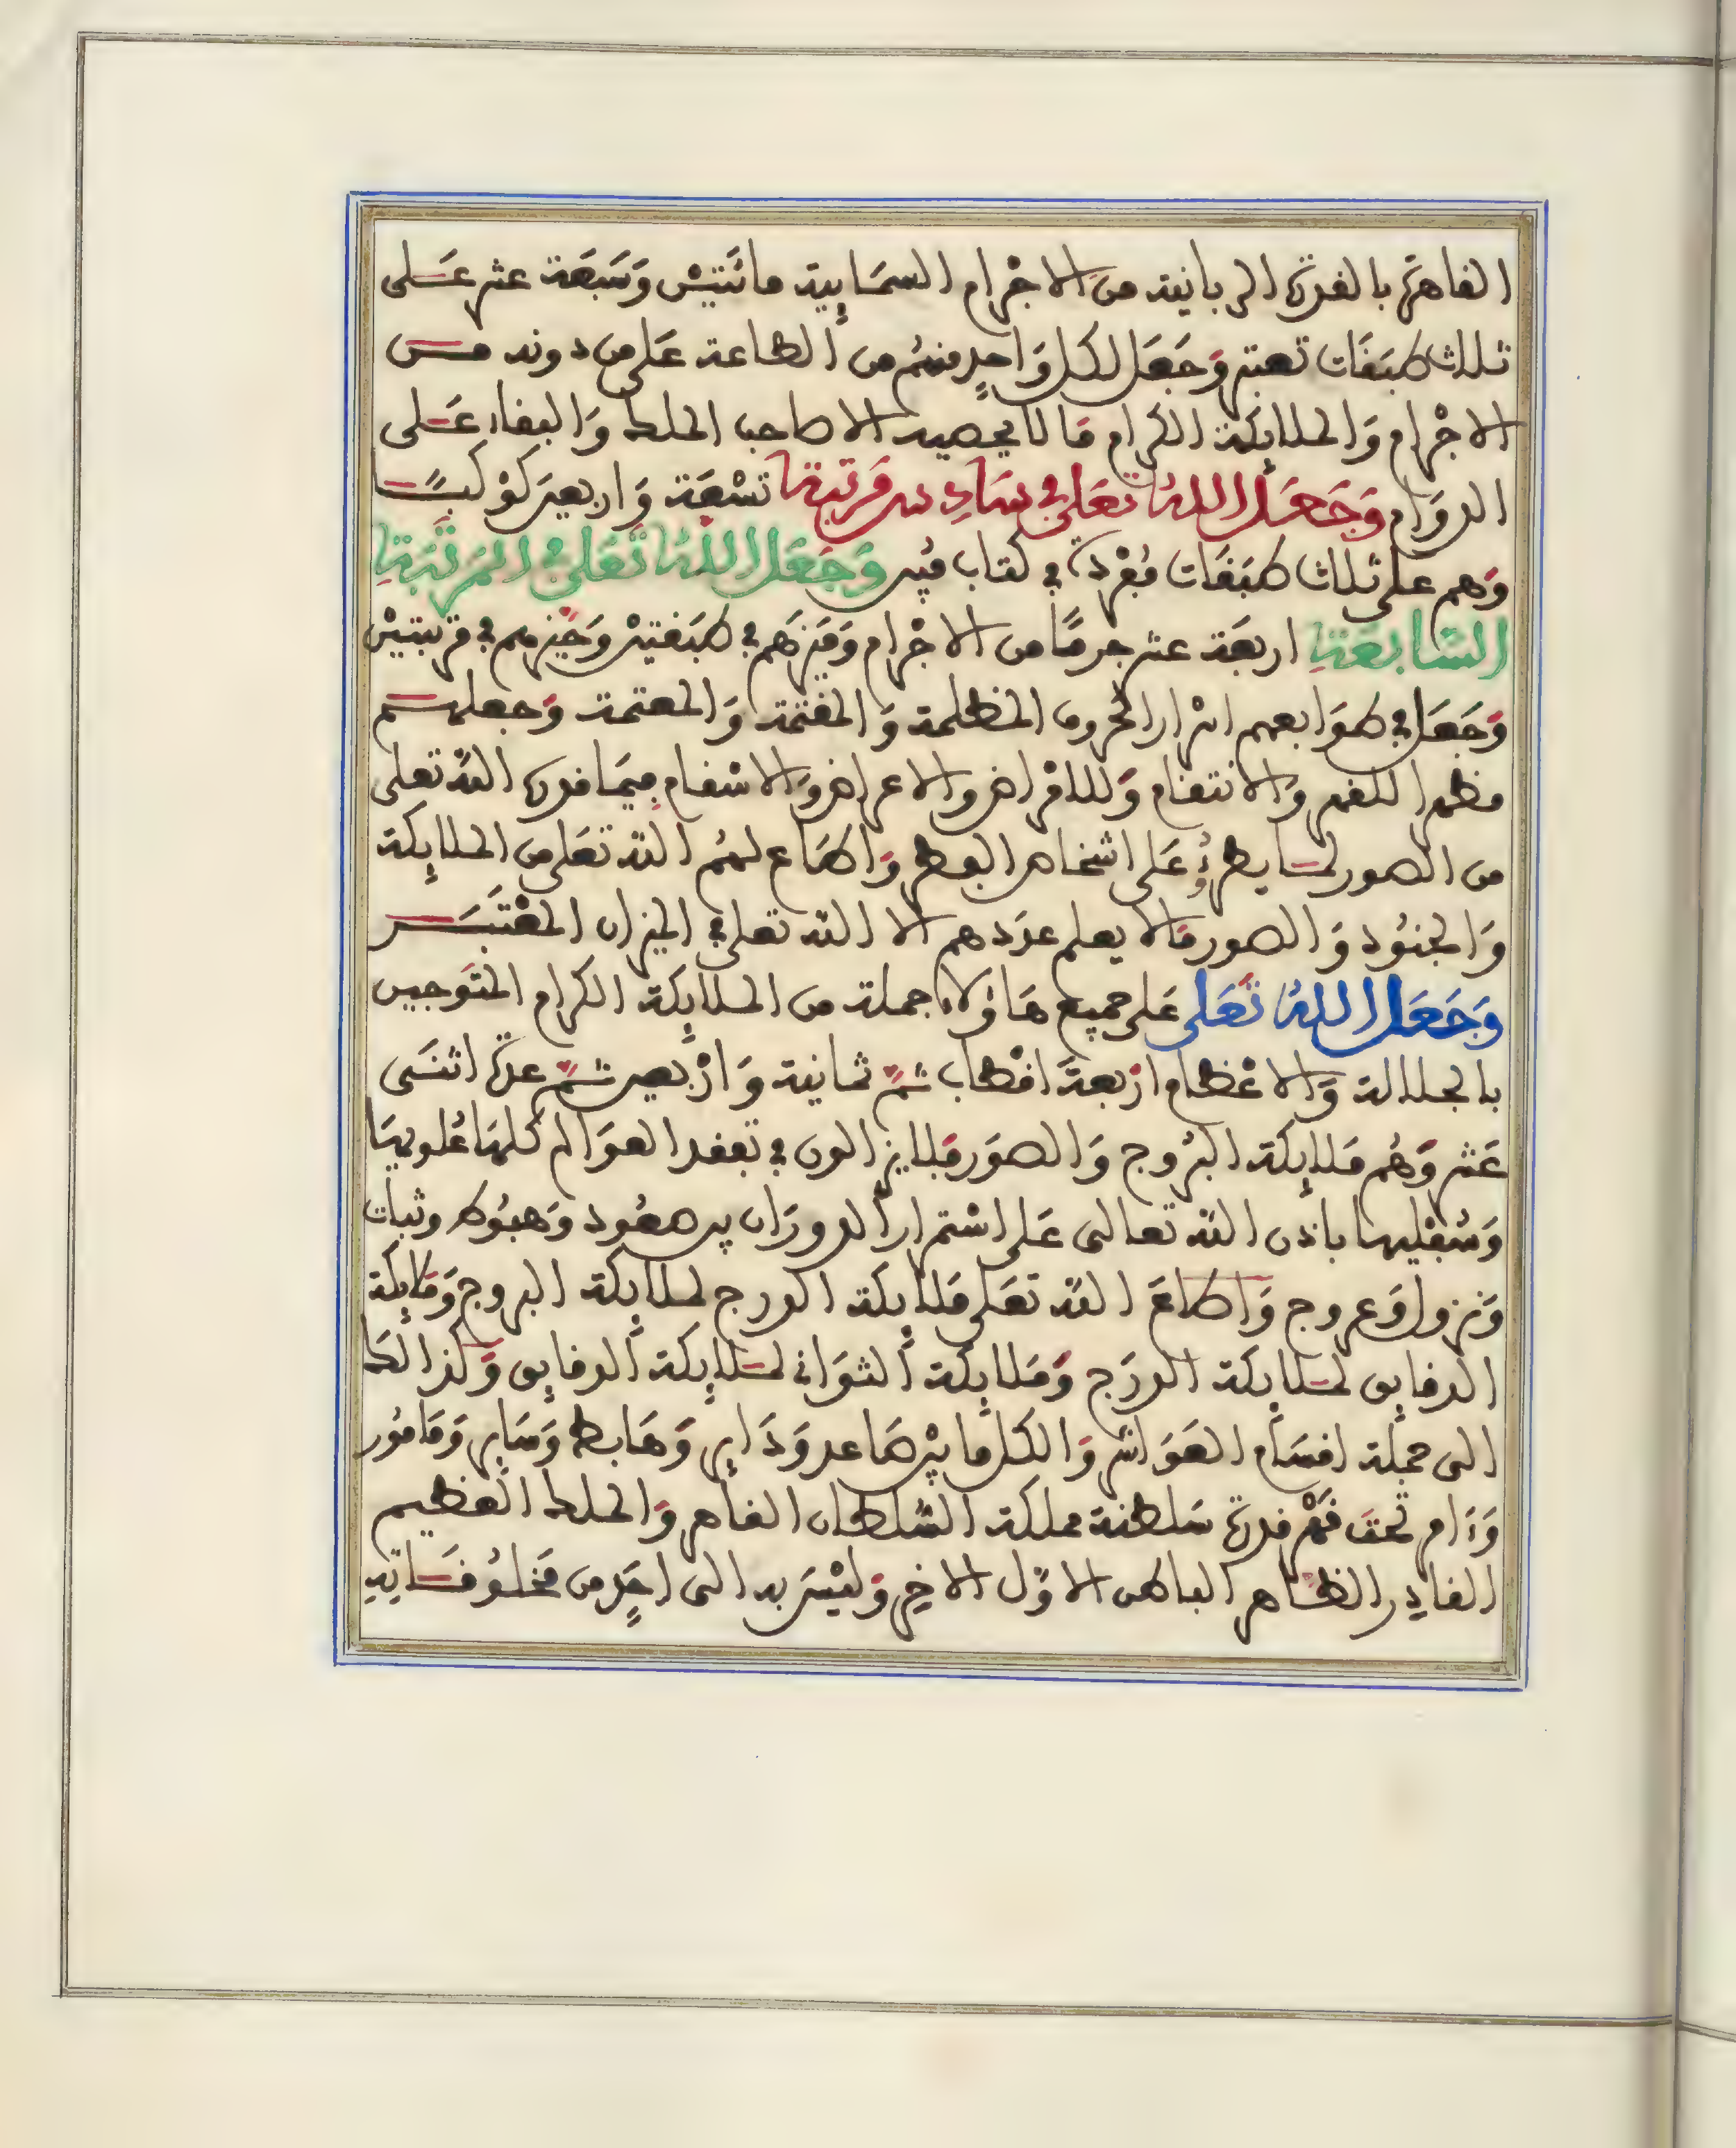 القاهرة بالقدرة الربانية من الاجْرام السمَايِية مائتَيْن وَسَبعَة عشر عَلى
ثلاث طبَقَات تعتبر وَجَعَل لكل وَاحدٍ منهُم من الطاعة عَلى من دونه مــن
الاجْرام وَالملايكة الكرام مَا لا يحصيه الا صاحب الملك وَالبقاء عَلى
الدوَام وَجَعَل اللهُ تعَلى في سَادِس مَرتبة تسْعَة وَاربعين كوْكبًــا
وَهم على ثلاث طبَقَات مُفْردة في كتاب مُبين وَجَعَل اللهُ تَعَلى في المَرتَبَةِ
السَّابعَةِ اربعَة عشر جرمًا من الاجْرام وَمَيزهَم في طبَقتين وَحَيزهم في مرتبتيْن
وَجَعَل في طوَابعهم اسْرار الحروف المظلمة وَالمغتمَة وَالمعتمة وَجعلهــم
مظهرا للقهر وَالانتقام وَللامْراض والاعراض وَالاسْقام فيمَا قدره الله تعلى
من الصور لمــا يطرؤ عَلى اشخاص البعض وَاطَاع لهمُ الله تعَلى من الملايكة
وَالجنوُد وَالصور مَالا يعلم عدَدهم الا الله تعلى في الميزان المعْتَبَــر
وَجَعَل اللهُ تَعَلى عَلى جميع هَاؤلاء جملة من الملايِكة الكرام المتوَجين
بالجلالة وَالاعْظام ارْبعةَ اقْطاب ثــمَّ ثمانية وَارْبعين ثــمَّ عدة اثنَــى
عَشر وَهُم مَلايِكة البرُوج وَالصوَر مَلا يزالون في تفقد العوَالم كلهَا عُلويهَا
وَسُفْليها باذن الله تعالى عَلى اسْتمرار الدورَان بين صعُود وَهبُوط وثبات
وَنزول وَعروج وَاطاعَ الله تعَلى مَلايكة الدرج لملايكة البروج وَمَلايِكة
الدقايق لمــلايكة الدرَج وَمَلايِكة الثوَاني لمــلايِكة الدقايق وَكذالك
الى جملَة اقسَام العَوَاشر وَالكل مَا بيْن صَاعد وَدَاير وَهَابط وَسَاير وَمَامُور
وَءَام تحت قَهْر قدرة سَلطنة مملكة السُّلطان القاهر وَالملك العَظيم
القادِر الظــاهر الباطن الاوّل الاخِر وَليْسَ به الى احَدٍ من مَخلوُقَــاتِهِ